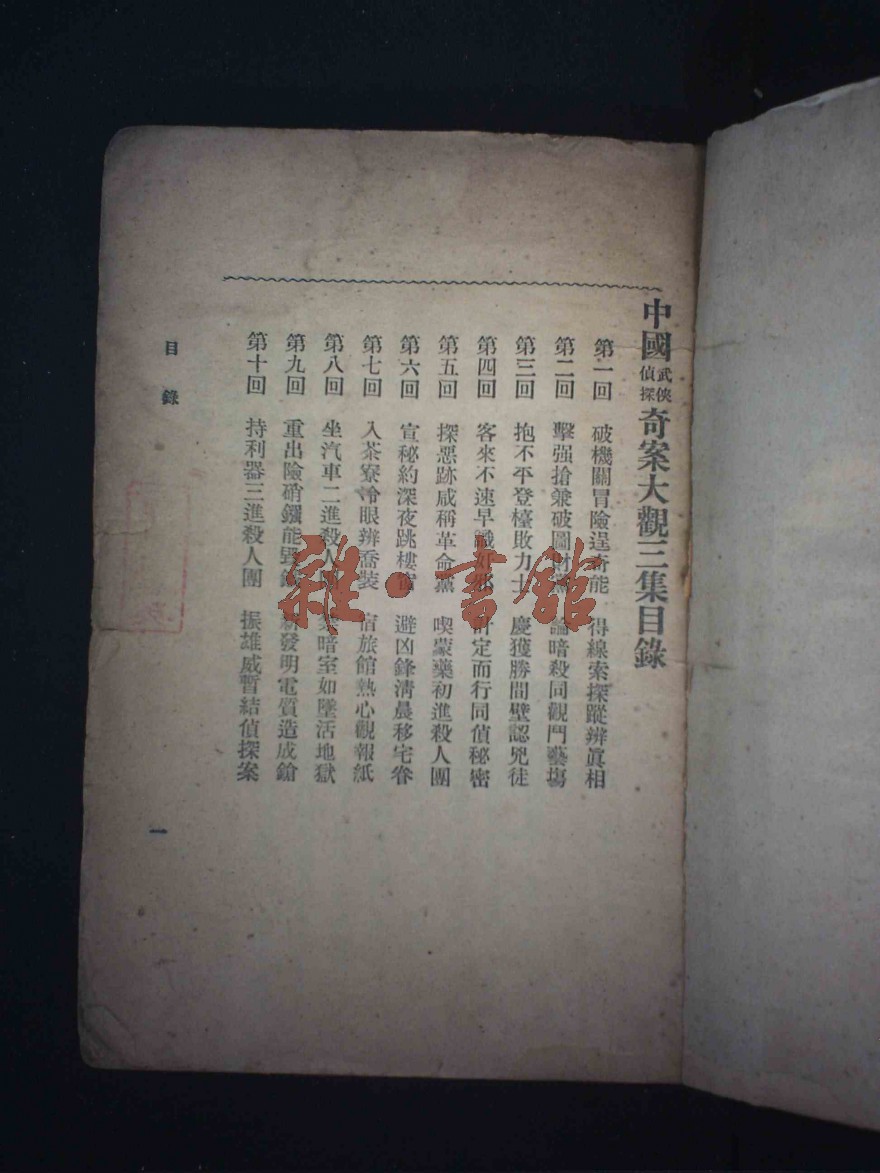 中國武俠偵探奇案大觀三集目錄
第一回 破機關冒險逞奇能 得線索探蹤辨眞相
第二回 擊强搶兼破圖財黨 論暗殺同觀鬥藝塲
第三回 抱不平登檯敗力士 慶獲勝間壁認兇徒
第四回 客來不速早識奸邪 計定而行同偵秘密
第五回 探惡跡咸稱革命黨 喫蒙藥初進殺人團
第六回 宣秘約深夜跳樓窗 避凶鋒淸晨移宅眷
第七回 入茶寮冷眼辨喬裝 宿旅館熱心觀報紙
第八回 坐汽車二進殺人團 禁暗室如墜活地獄
第九回 重出險硝鏹能毀 新發明電質造成鎗
第十回 持利器三進殺人團 振雄威暫結偵探案
目錄
一
雜·書館